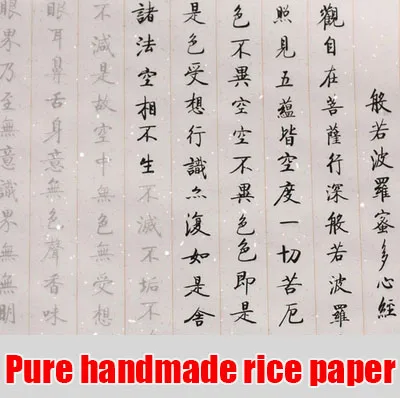 般若波羅蜜多心經
觀自在菩薩行深般若波羅
照見五蘊皆空度一切苦厄
色不異空空不異色色即是
是色受想行識亦復如是舍
諸法空相不生不滅不垢不
不減是故空中無色無受想
眼耳鼻舌身意無色聲香味
眼界乃至無意識界無無明
Pure handmade rice paper